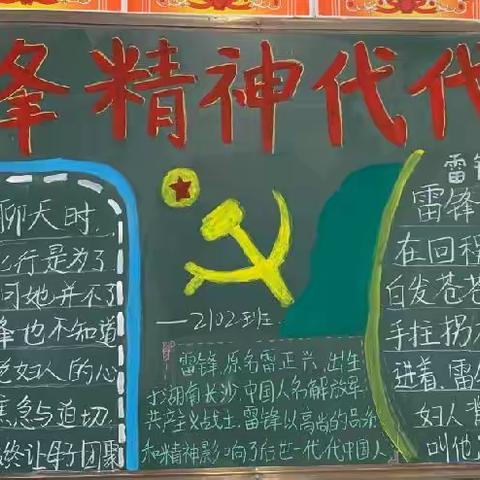 锋精神代代
聊天时
行是为了
问她并不了
锋也不知道
妇人的心
焦急与迫切
终让母子团聚
——2102班
雷锋,原名雷正兴,出生
于湖南长沙,中国人名解放军
共产主义战士,雷锋以高尚的品
和精神影响了后世一代代中国人
雷锋
雷锋
在回
白发苍苍
手拄拐
进着,雷
妇人
叫他